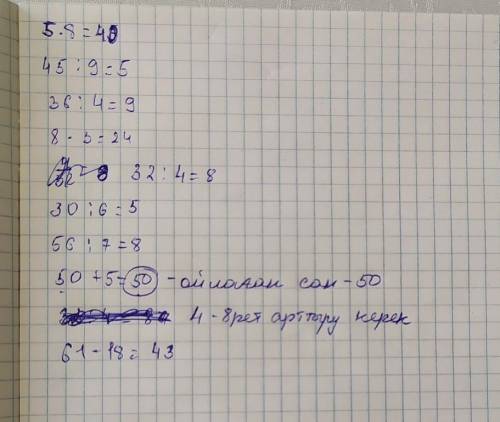 5·8=40
45:9=5
36:4=9
8·3=24
32:4=8
30:6=5
56:7=8
50+5=50 -ойлаған сан-50
4-8рет арттыру керек
61-18=43